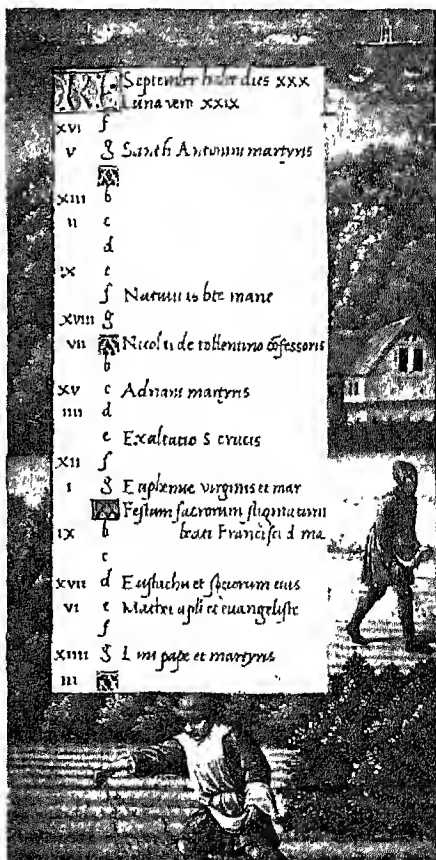 KL September habet dies xxx
Luna vero xxix
xvi f
v g Sancti Antonini martyris
A
xiii b
ii c
d
ix e
f Natiuitas bte marie
xviii g
vii A Nicolai de tollentino cōfessoris
b
xv c Adriani martyris
iiii d
e Exaltatio S crucis
xii f
i g Euphemie virginis et mar
A Festum sacrorum stigmatum
ix b beati Francisci d ma
c
xvii d Eustachii et sociorum eius
vi e Mathei apli et euangeliste
f
xiiii g pape et martyris
iii A